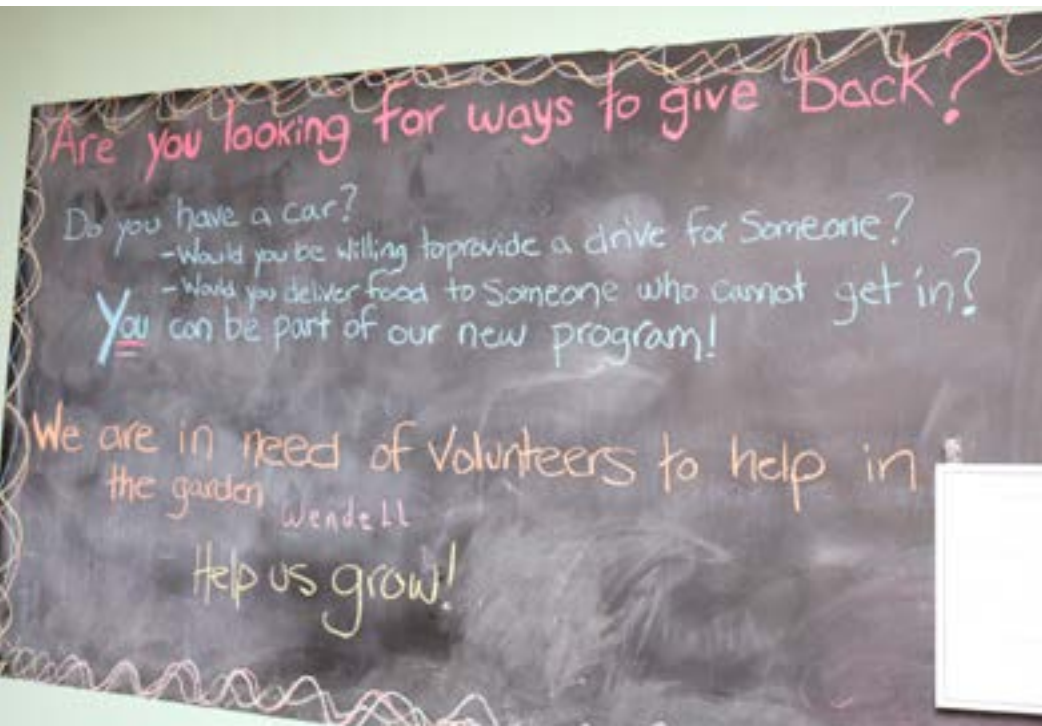 Are you looking for ways to give back?
Do you have a car?
-Would you be willing to provide a drive for Someone?
-Would you deliver food to Someone who cannot get in?
You can be part of our new program!
We are in need of Volunteers to help in
the garden
Wendell
Help us grow!